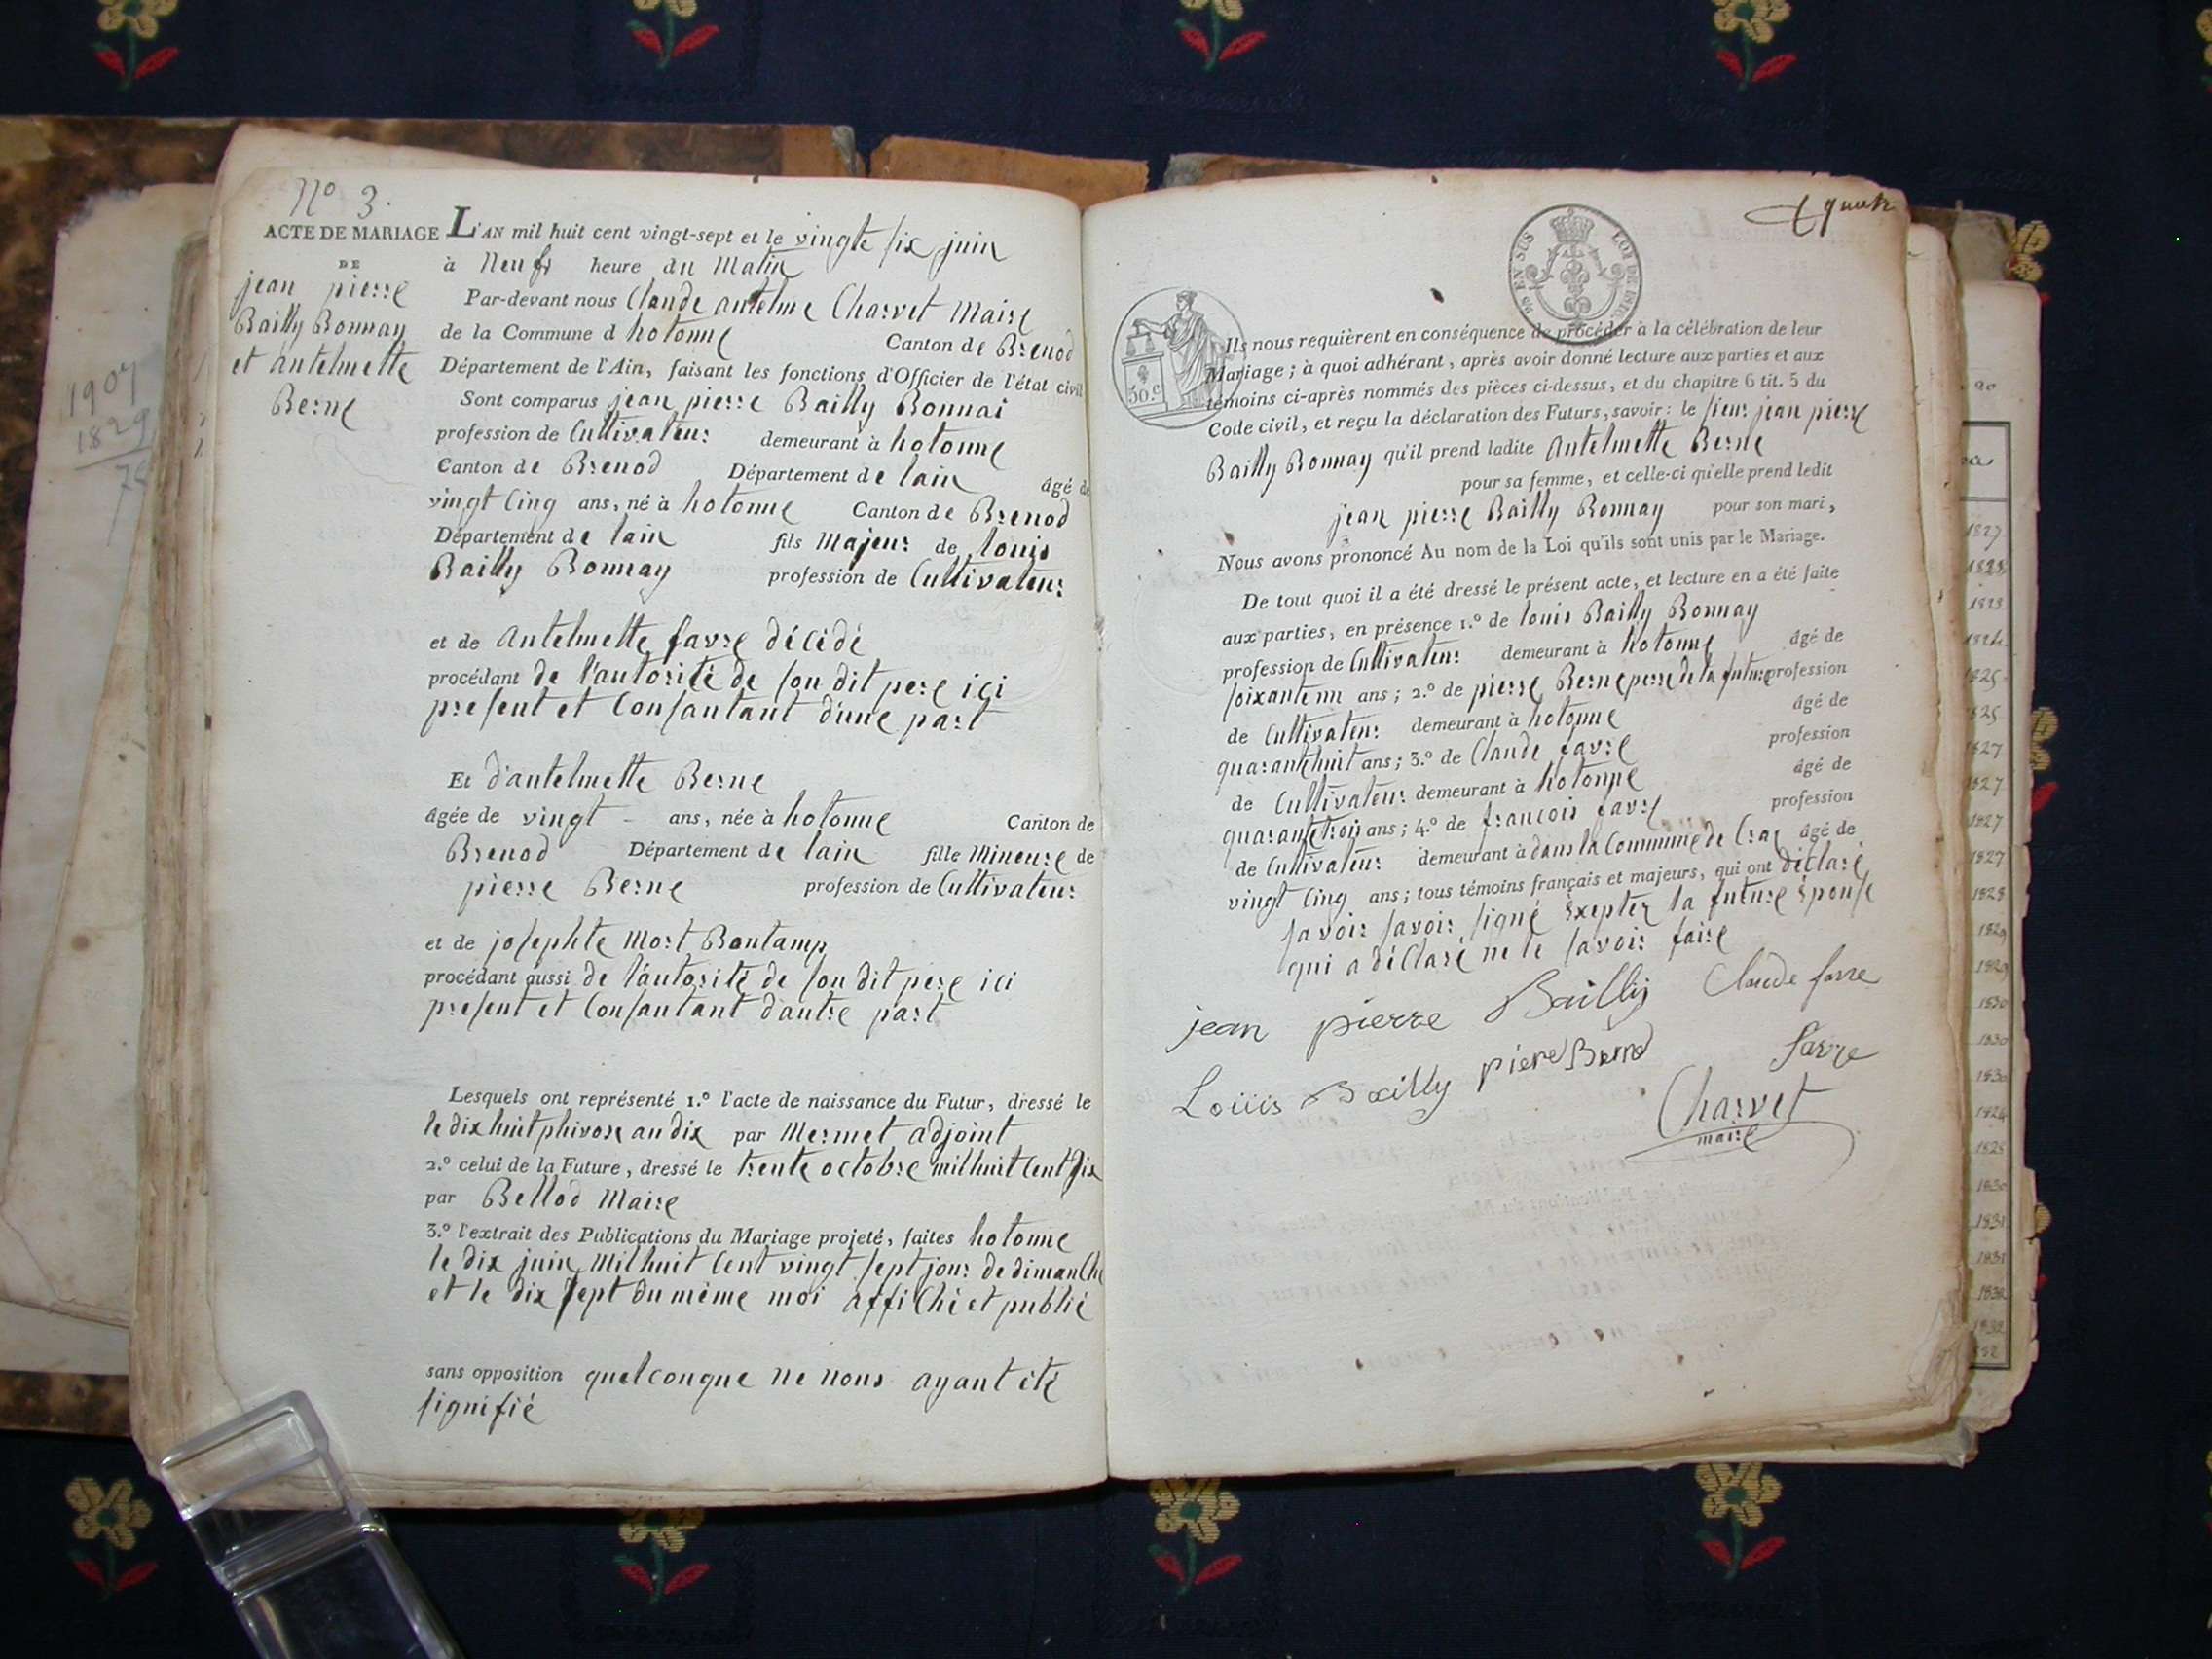 N.º 3.
ACTE DE MARIAGE
DE
jean pierre
Bailly Bonnay
et antelmette
Berne
L'AN mil huit cent vingt-sept et le vingte six juin
à Neufs heure du Matin
Par-devant nous Claude antelme Charvet Maire
de la Commune d hotonne Canton de Brenod
Département de l'Ain, faisant les fonctions d'Officier de l'état civil
Sont comparus jean pierre Bailly Bonnai
profession de Cultivateur demeurant à hotonne
Canton de Brenod Département de lain âgé de
vingt Cinq ans, né à hotonne Canton de Brenod
Département de lain fils Majeur de louis
Bailly Bonnay profession de Cultivateur
et de antelmette favre décédé
procédant de l'autorité de son dit pere ici
present et Consantant d'une part
Et d'antelmette Berne
âgée de vingt - ans, née à hotonne Canton de
Brenod Département de lain fille Mineure de
pierre Berne profession de Cultivateur
et de josephte Mort Bontamp
procédant aussi de l'autorité de son dit pere ici
present et Consantant d'autre part
Lesquels ont représenté 1.º l'acte de naissance du Futur, dressé le
le dix huit phivose an dix par Mermet adjoint
2.º celui de la Future, dressé le trente octobre mil huit Cent six
par Bellod Maire
3.º l'extrait des Publications du Mariage projeté, faites hotonne
le dix juin Mil huit Cent vingt sept jour de dimanChe
et le dix sept du même moi affiChé et publié
sans opposition quelconque ne nous ayant été
signifié
1907
1829
EN SUS
LOI DE
30.c
Ils nous requièrent en conséquence de procéder à la célébration de leur
Mariage ; à quoi adhérant, après avoir donné lecture aux parties et aux
témoins ci-après nommés des pièces ci-dessus, et du chapitre 6 tit. 5 du
Code civil, et reçu la déclaration des Futurs, savoir : le sieur jean pierre
Bailly Bonnay qu'il prend ladite antelmette Berne
pour sa femme, et celle-ci qu'elle prend ledit
jean pierre Bailly Bonnay pour son mari,
Nous avons prononcé Au nom de la Loi qu'ils sont unis par le Mariage.
De tout quoi il a été dressé le présent acte, et lecture en a été faite
aux parties, en présence 1.º de louis Bailly Bonnay
profession de Cultivateur demeurant à hotonne âgé de
soixante un ans ; 2.º de pierre Berne pere de la future profession
de Cultivateur demeurant à hotonne âgé de
quarante huit ans ; 3.º de Claude favre profession
de Cultivateur demeurant à hotonne âgé de
quarante trois ans ; 4.º de francois favre profession
de Cultivateur demeurant à dans la Commune de Craz âgé de
vingt Cinq ans ; tous témoins français et majeurs, qui ont déClaré
savoir savoir signé Exepter la future Epouse
qui a déClaré ne le savoir faire
jean pierre Bailly Claude favre
Louis Bailly piere Berne favre
Charvet
maire
1827
1828
1823
1824
1825
1825
1827
1827
1827
1827
1828
1829
1829
1830
1830
1830
1824
1825
1830
1831
1831
1832
1832